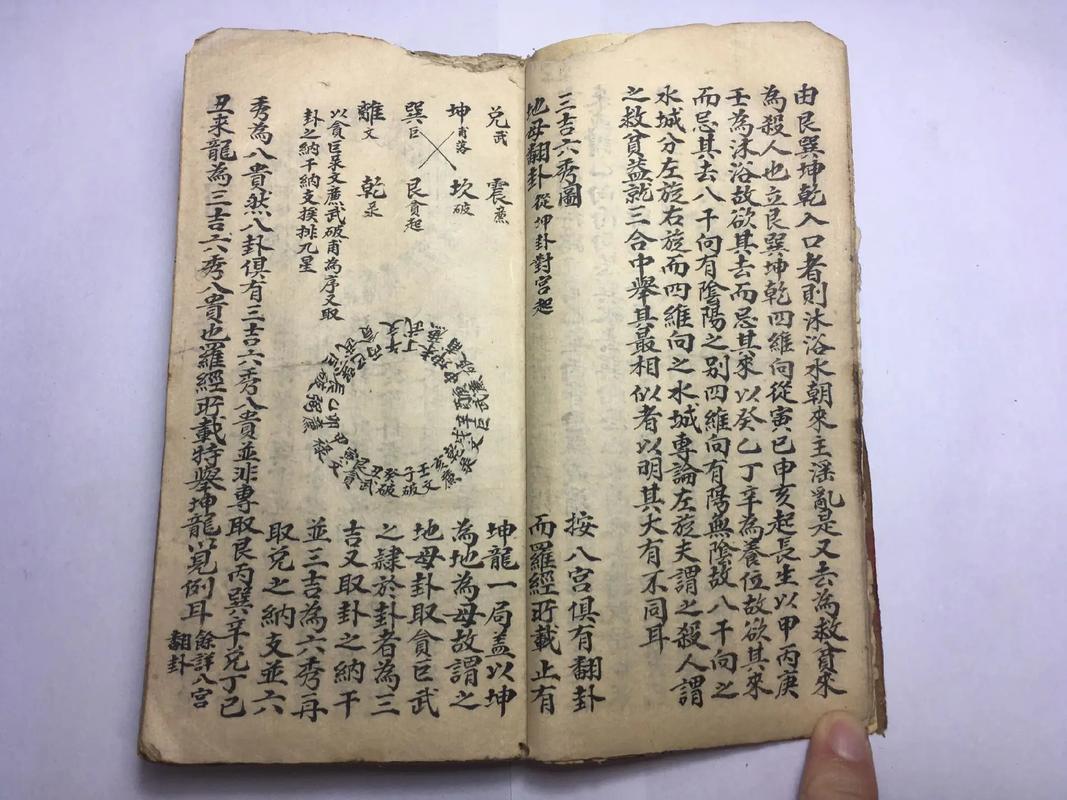 由艮巽坤乾入口者則沐浴水朝來主淫亂是又去為救貧來
為殺人也立艮巽坤乾四維向從寅巳申亥起長生以甲丙庚
壬為沐浴故欲其去而忌其來以癸乙丁辛為養位故欲其來
而忌其去八干向有陰陽之別四維向有陽無陰故八干向之
水城分左旋右旋而四維向之水城專論左旋夫謂之殺人謂
之救貧益就三合中舉其最相似者以明其大有不同耳
三吉六秀圖
按八宮俱有翻卦
地母翻卦 從坤卦對宮起
而羅經所載止有
兌武 震廉
坤甫落 坎破
巽巨 艮貪起
離文 乾彔
以貪巨彔文廉武破甫為序又取
卦之納干納支挨排九星
壬文
子破
癸破
丑武
坤龍一局蓋以坤
為地為母故謂之
地母卦取貪巨武
之隸於卦者為三
吉又取卦之納干
並三吉為六秀再
取兌之納支並六
秀為八貴然八卦俱有三吉六秀八貴並非專取艮丙巽辛兌丁巳
丑來龍為三吉六秀八貴也羅經所載特舉坤龍以見例耳 餘詳八宮
翻卦